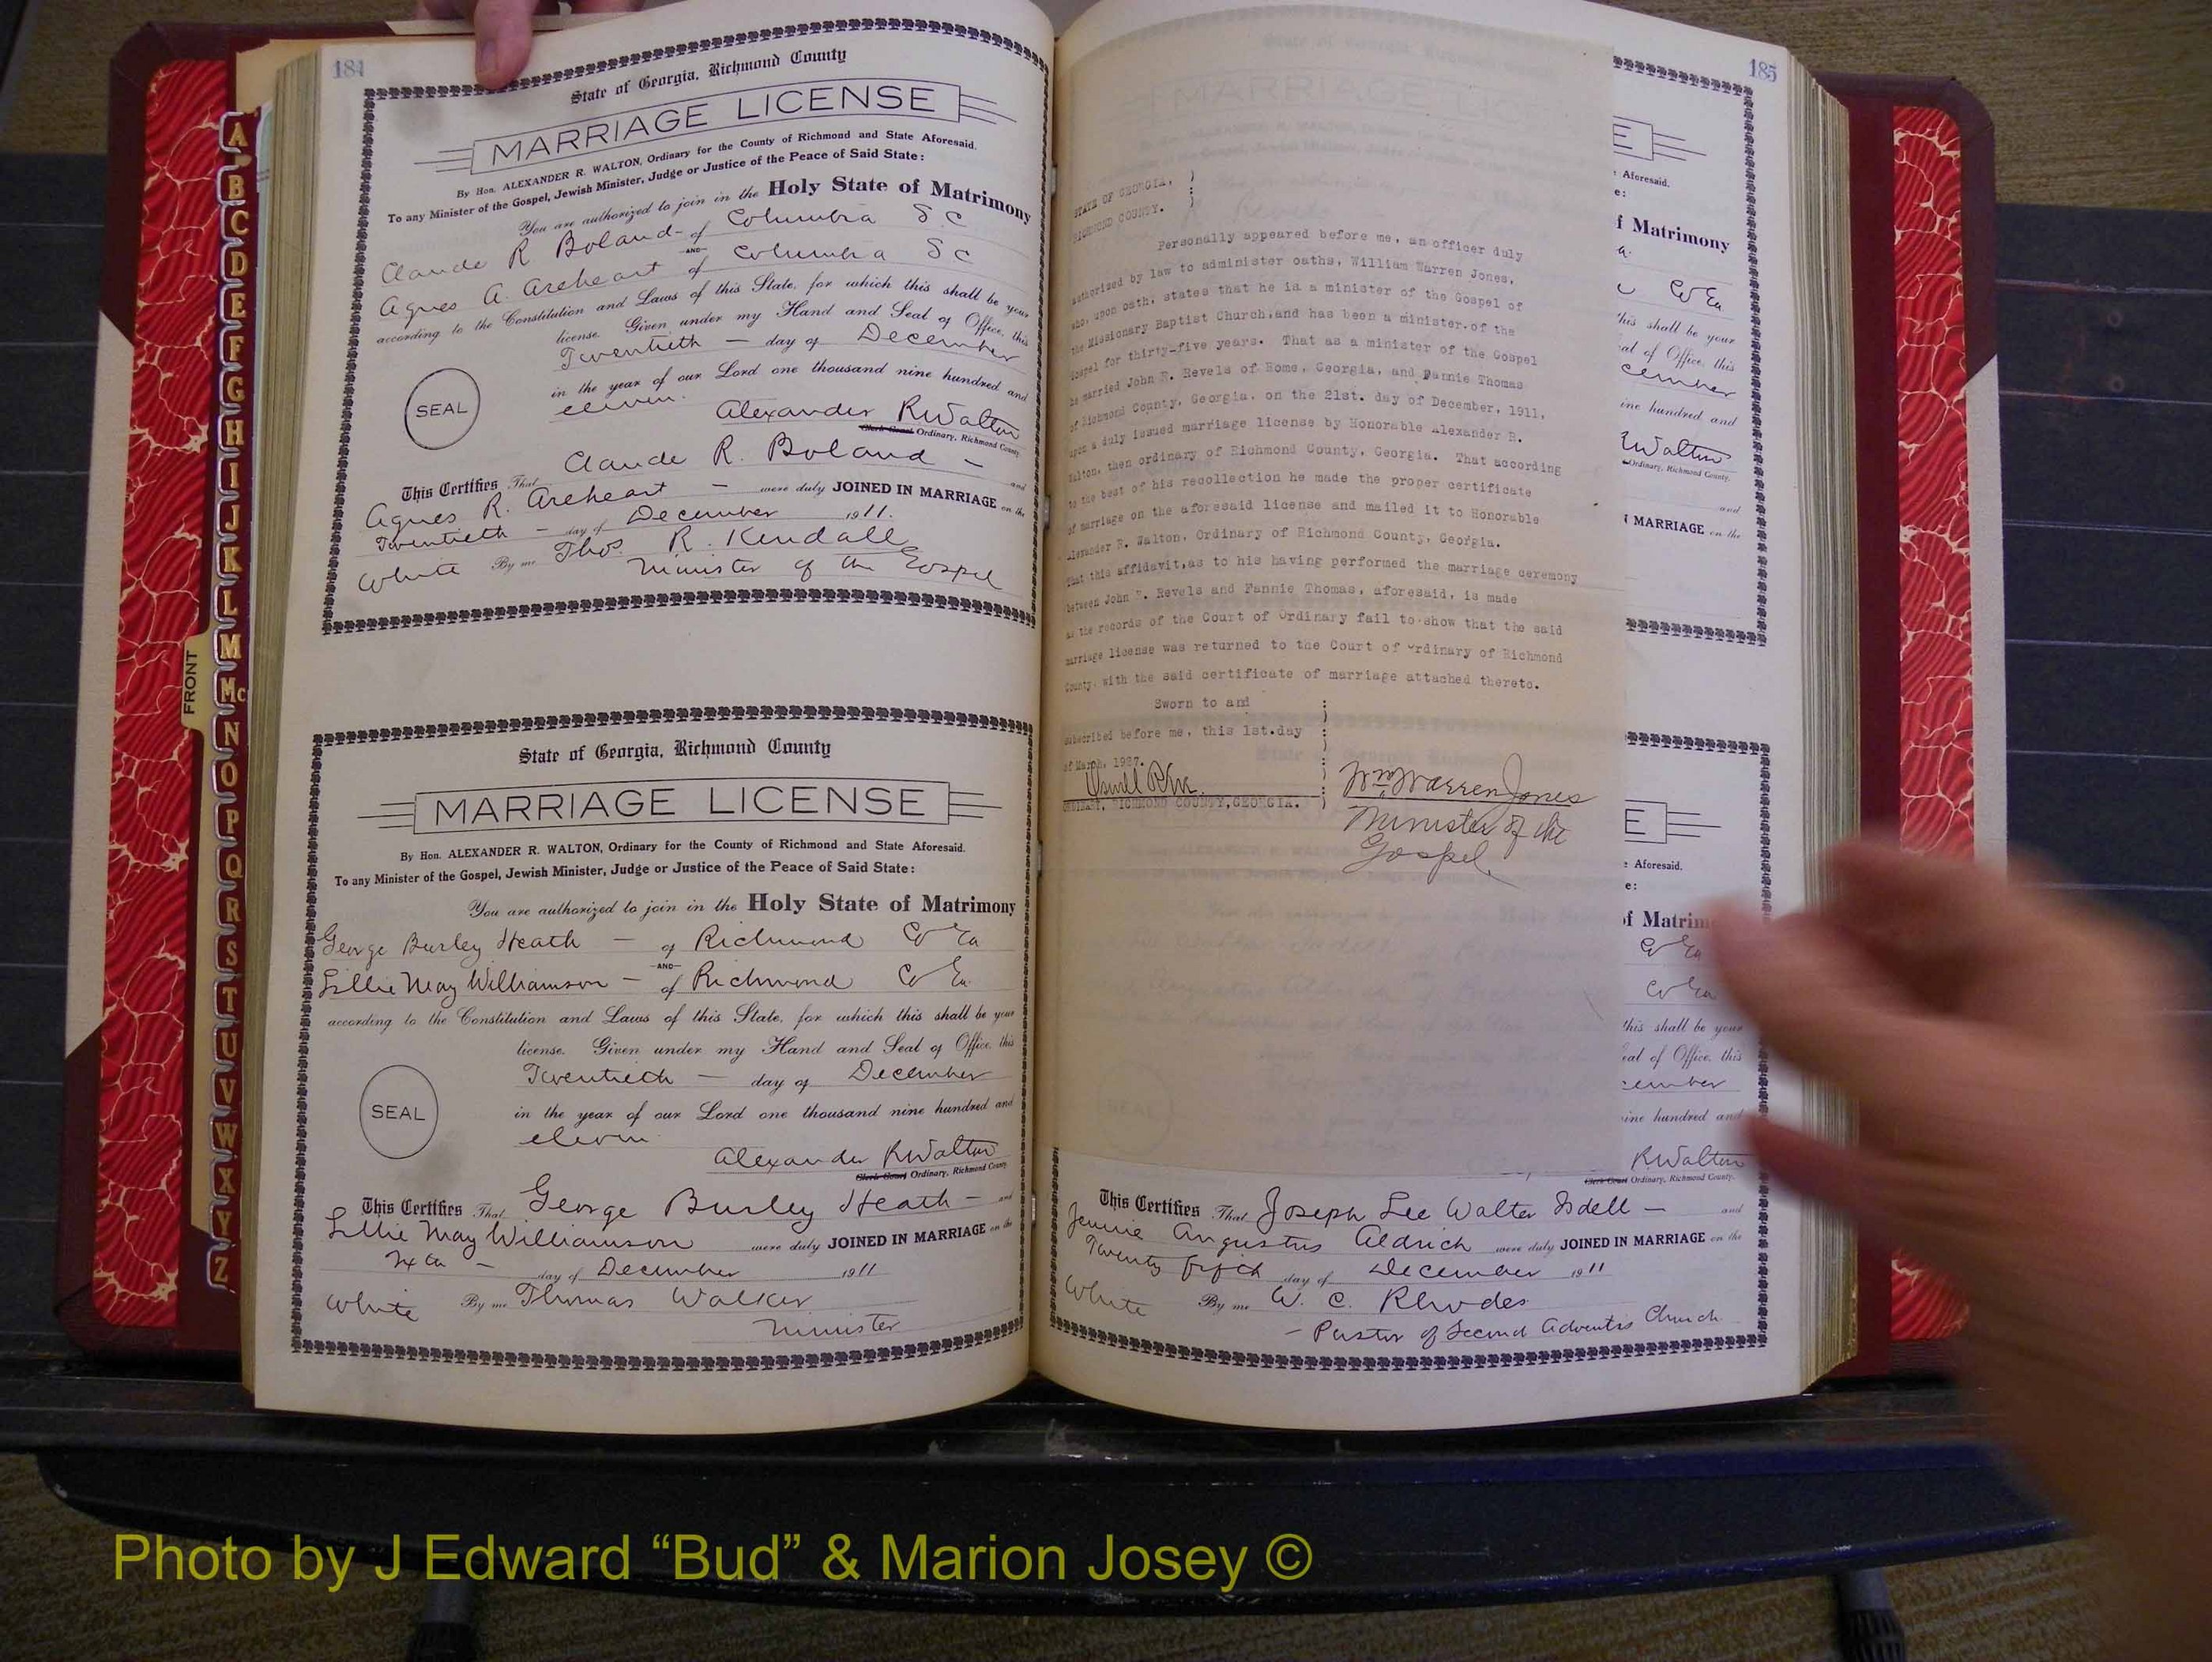 184
State of Georgia, Richmond County
MARRIAGE LICENSE
By Hon. ALEXANDER R. WALTON, Ordinary for the County of Richmond and State Aforesaid.
To any Minister of the Gospel, Jewish Minister, Judge or Justice of the Peace of Said State:
You are authorized to join in the Holy State of Matrimony
Claude R Boland - of Columbia S C
AND
Agnes A. Areheart of Columbia S C
according to the Constitution and Laws of this State, for which this shall be your
license. Given under my Hand and Seal of Office, this
Twentieth — day of December
in the year of our Lord one thousand nine hundred and
eleven.
SEAL
Alexander R Walton
Clerk Court Ordinary, Richmond County.
This Certifies That Claude R. Boland — and
Agnes R. Areheart — were duly JOINED IN MARRIAGE on the
Twentieth — day of December 1911.
White By me Thos. R. Kendall
Minister of the Gospel
State of Georgia, Richmond County
MARRIAGE LICENSE
By Hon. ALEXANDER R. WALTON, Ordinary for the County of Richmond and State Aforesaid.
To any Minister of the Gospel, Jewish Minister, Judge or Justice of the Peace of Said State:
You are authorized to join in the Holy State of Matrimony
George Burley Heath — of Richmond Co Ga
AND
Lillie May Williamson — of Richmond Co Ga.
according to the Constitution and Laws of this State, for which this shall be your
license. Given under my Hand and Seal of Office, this
Twentieth — day of December
in the year of our Lord one thousand nine hundred and
eleven.
SEAL
Alexander R Walton
Clerk Court Ordinary, Richmond County.
This Certifies That George Burley Heath — and
Lillie May Williamson were duly JOINED IN MARRIAGE on the
— day of December 1911
White By me Thomas Walker
Minister
FRONT
A
B
C
D
E
F
G
H
I
J
K
L
M
Mc
N
O
P
Q
R
S
T
U
V
W
X
Y
Z
185
STATE OF GEORGIA,
RICHMOND COUNTY.
Personally appeared before me, an officer duly
authorized by law to administer oaths, William Warren Jones,
who, upon oath, states that he is a minister of the Gospel of
the Missionary Baptist Church, and has been a minister of the
Gospel for thirty-five years. That as a minister of the Gospel
he married John R. Revels of Rome, Georgia, and Fannie Thomas
of Richmond County, Georgia, on the 21st. day of December, 1911,
upon a duly issued marriage license by Honorable Alexander R.
Walton, then ordinary of Richmond County, Georgia. That according
to the best of his recollection he made the proper certificate
of marriage on the aforesaid license and mailed it to Honorable
Alexander R. Walton, Ordinary of Richmond County, Georgia.
That this affidavit, as to his having performed the marriage ceremony
between John R. Revels and Fannie Thomas, aforesaid, is made
as the records of the Court of Ordinary fail to show that the said
marriage license was returned to the Court of Ordinary of Richmond
County, with the said certificate of marriage attached thereto.
Sworn to and
subscribed before me, this 1st.day
of March, 1937.
ORDINARY, RICHMOND COUNTY, GEORGIA.
Wm Warren Jones
Minister of the
Gospel.
E
: Aforesaid.
e:
f Matrimony
a.
Co Ga
this shall be your
eal of Office, this
cember
ine hundred and
Walton
Ordinary, Richmond County.
and
MARRIAGE on the
E
: Aforesaid.
e:
of Matrim
Co Ga
Co Ga
this shall be your
eal of Office, this
cember
nine hundred and
R Walton
Clerk Court Ordinary, Richmond County.
This Certifies That Joseph Lee Walter Isdell — and
Jennie Angustus Aldrich were duly JOINED IN MARRIAGE on the
Twenty fifth day of December 1911
White By me W. C. Rhodes
- Pastor of Second Advents Church
Photo by J Edward “Bud” & Marion Josey ©